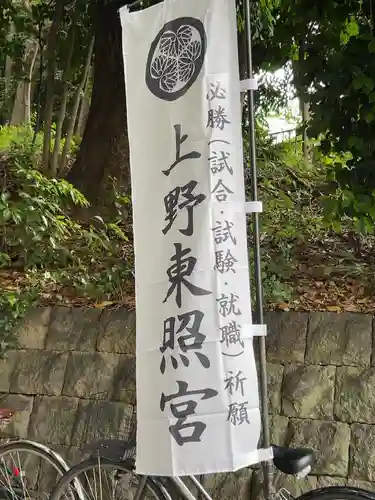 必勝（試合・試験・就職）祈願
上野東照宮